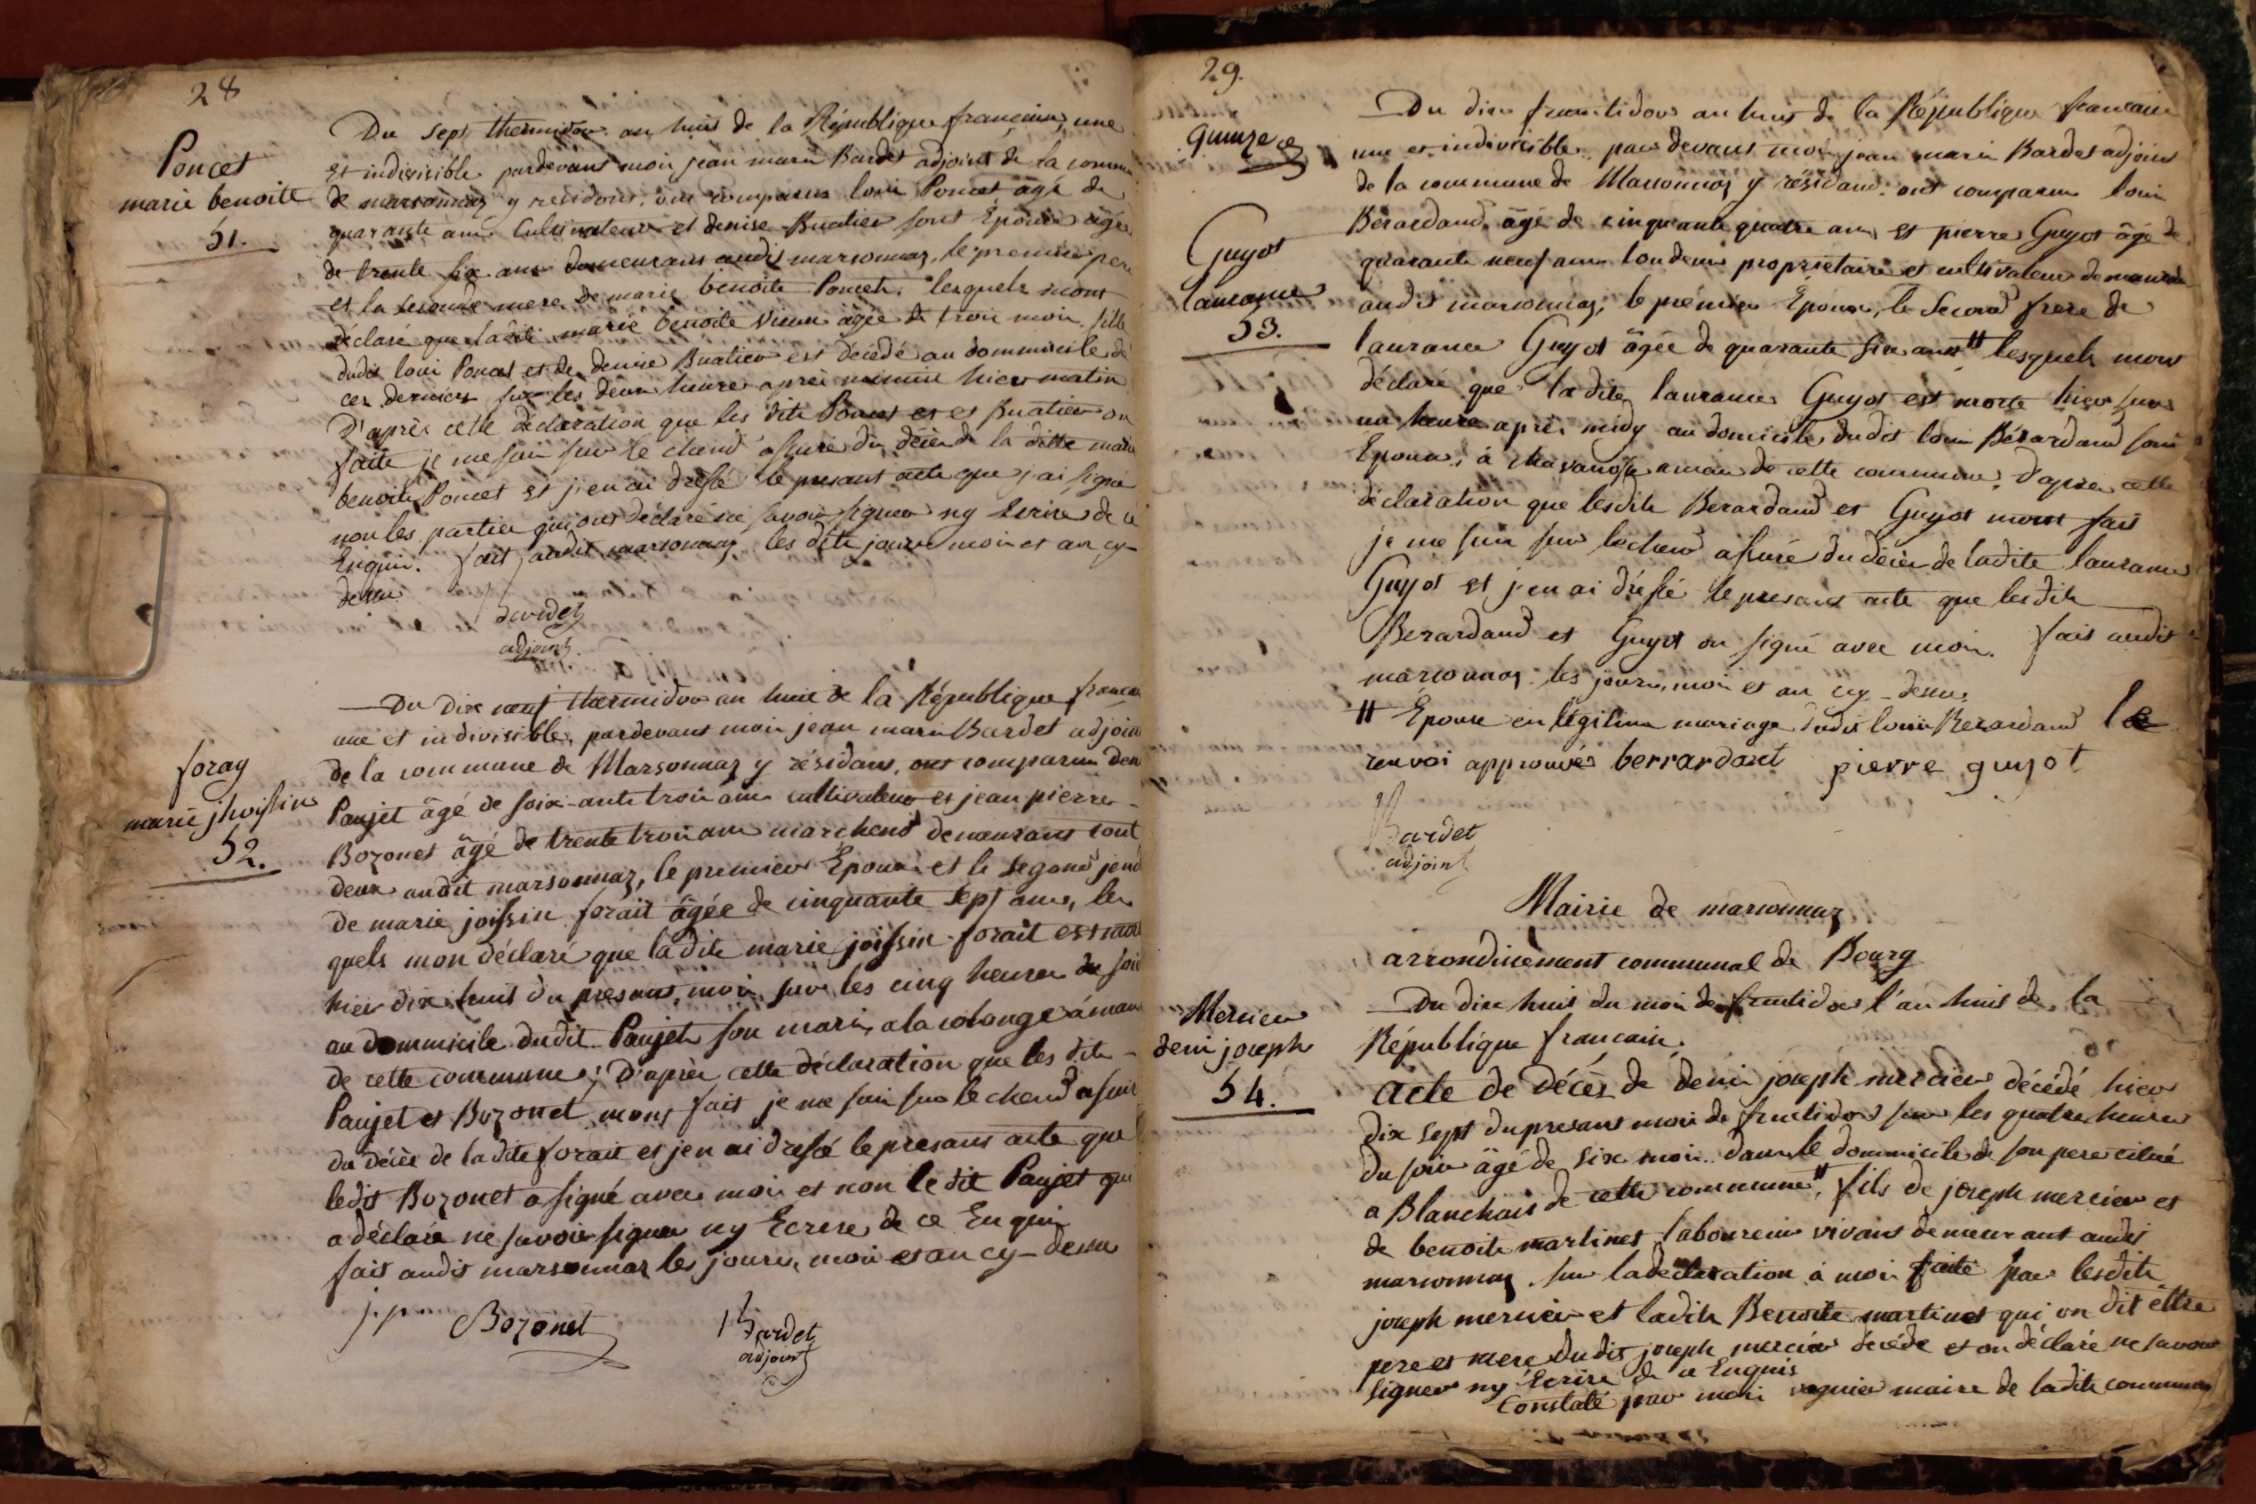 28
Poncet
marie benoite
51.
Du sept thermidor an huit de la République française, une
et indivisible pardevant moi jean marie Bardet adjoint de la commu
de marsonnaz y résidant, ont comparus loui Poncet âgé de
quarante ans Cultivateur et denise Buatier sont Épouse agée
de trente six ans demeurans audit marsonnaz, le premier pere
et la seconde mere de marie benoite Poncet. lesquels mont
déclaré que ladite marie benoite vivan agée de troi moi fille
dudit loui Poncet et de denise Buatier est décédé au dommicile de
ces derniers sur les deux heures aprés minuit hier matin
D'après cette déclaration que les dits Poncet et et Buatier on
faite je me sui sur le chend assuré du décès de la ditte marie
benoite Poncet et j'en ai dressé le presant acte que j'ai signé
non les parties qui ont déclaré ne savoir signer ny Ecrire de ce
Enquis. fait audit marsonnaz les dits jours moi et an cy-
dessu
Bardet
adjoint.
foray
marie jhoissine
52.
Du Dix neuf thermidor an huit de la République françai
une et indivisible, pardevant moi jean marie Bardet adjoin
de la commune de Marsonnaz y résidant, ont comparus den
Paujet âgé de soix-ante troi ans cultivateur et jean pierre
Bozonet âgé de trente troi ans marchend demeurans tout
deux audit marsonnaz, le premier Époux et le segond jend
de marie joissin forait âgée de cinquante sept ans, les
quels mon déclaré que ladite marie joissin forait est mor
hier dix huit du presant moi sur les cinq heures du soir
au dommicile dudit Paujet son mari, a la colonge á mau
de cette commune; D'après cette déclaration que les dits
Paujet et Bozonet mont fait je me sui sur le chend assuré
du décès de ladite forait et jen ai dressé le presant acte que
ledit Bozonet a signé avec moi et non le dit Paujet qui
a déclaré ne savoir signer ny Ecrire de ce Enqui
fait audit marsonnaz les jours, moi et an cy-dessu
j. p. Bozonet
Bardet
adjoint
29.
quinze
Guyot
laurance
53.
Du dix fructidor an huit de la République française
une et indivisible par devant moi jean marie Bardet adjoint
de la commune de Marsonnaz y résidant ont comparu loui
Berardand âgé de cinquante quatre ans et pierre Guyot âgé de
quarante neuf ans tou deux propriétaire et cultivateur demeurant
audit marsonnaz, le premier Époux, le Second frere de
laurance Guyot âgée de quarante six ans # lesquels mont
déclaré que ladite laurance Guyot est morte hier sur
un heure après midy au domicile dudit loui Bérardand son
Epoux, á chavanosse amau de cette commune. D'après cette
déclaration que lesdits Berardand et Guyot mont fait
je me sui sur le chend assuré du décès de ladite laurance
Guyot et j'en ai dréssé le presant acte que lesdits
Berardand et Guyot on signé avec moi. fait audit
marsonnaz les jours, moi et an cy-dessu
# Épouse en légitime mariage dudit loui Berardand le
renvoi approuvé berrardant pierre guyot
Bardet
adjoint
Mairie de marsonnaz
arrondinement communal de Bourg
Mercier
deni joseph
54.
Du dix huit du moi de fructidor l'an huit de la
République française.
acte de décès de deni joseph mercier décédé hier
dix sept du presant moi de fructidor sur les quatre heures
du soir âgé de six moi dans le dommicile de son pere citué
a Blanchair de cette commune #, fils de joseph mercier et
de benoite martinet laboureur vivans demeurant audit
marsonnaz. sur la déclaration á moi faite par lesdits
joseph mercier et ladite Benoite martinet qui on dit être
pere et mere dudit joseph mercier décédé et on déclaré ne savoir
signer ny Écrire de ce Enquis
Constaté par moi maire de ladite commune